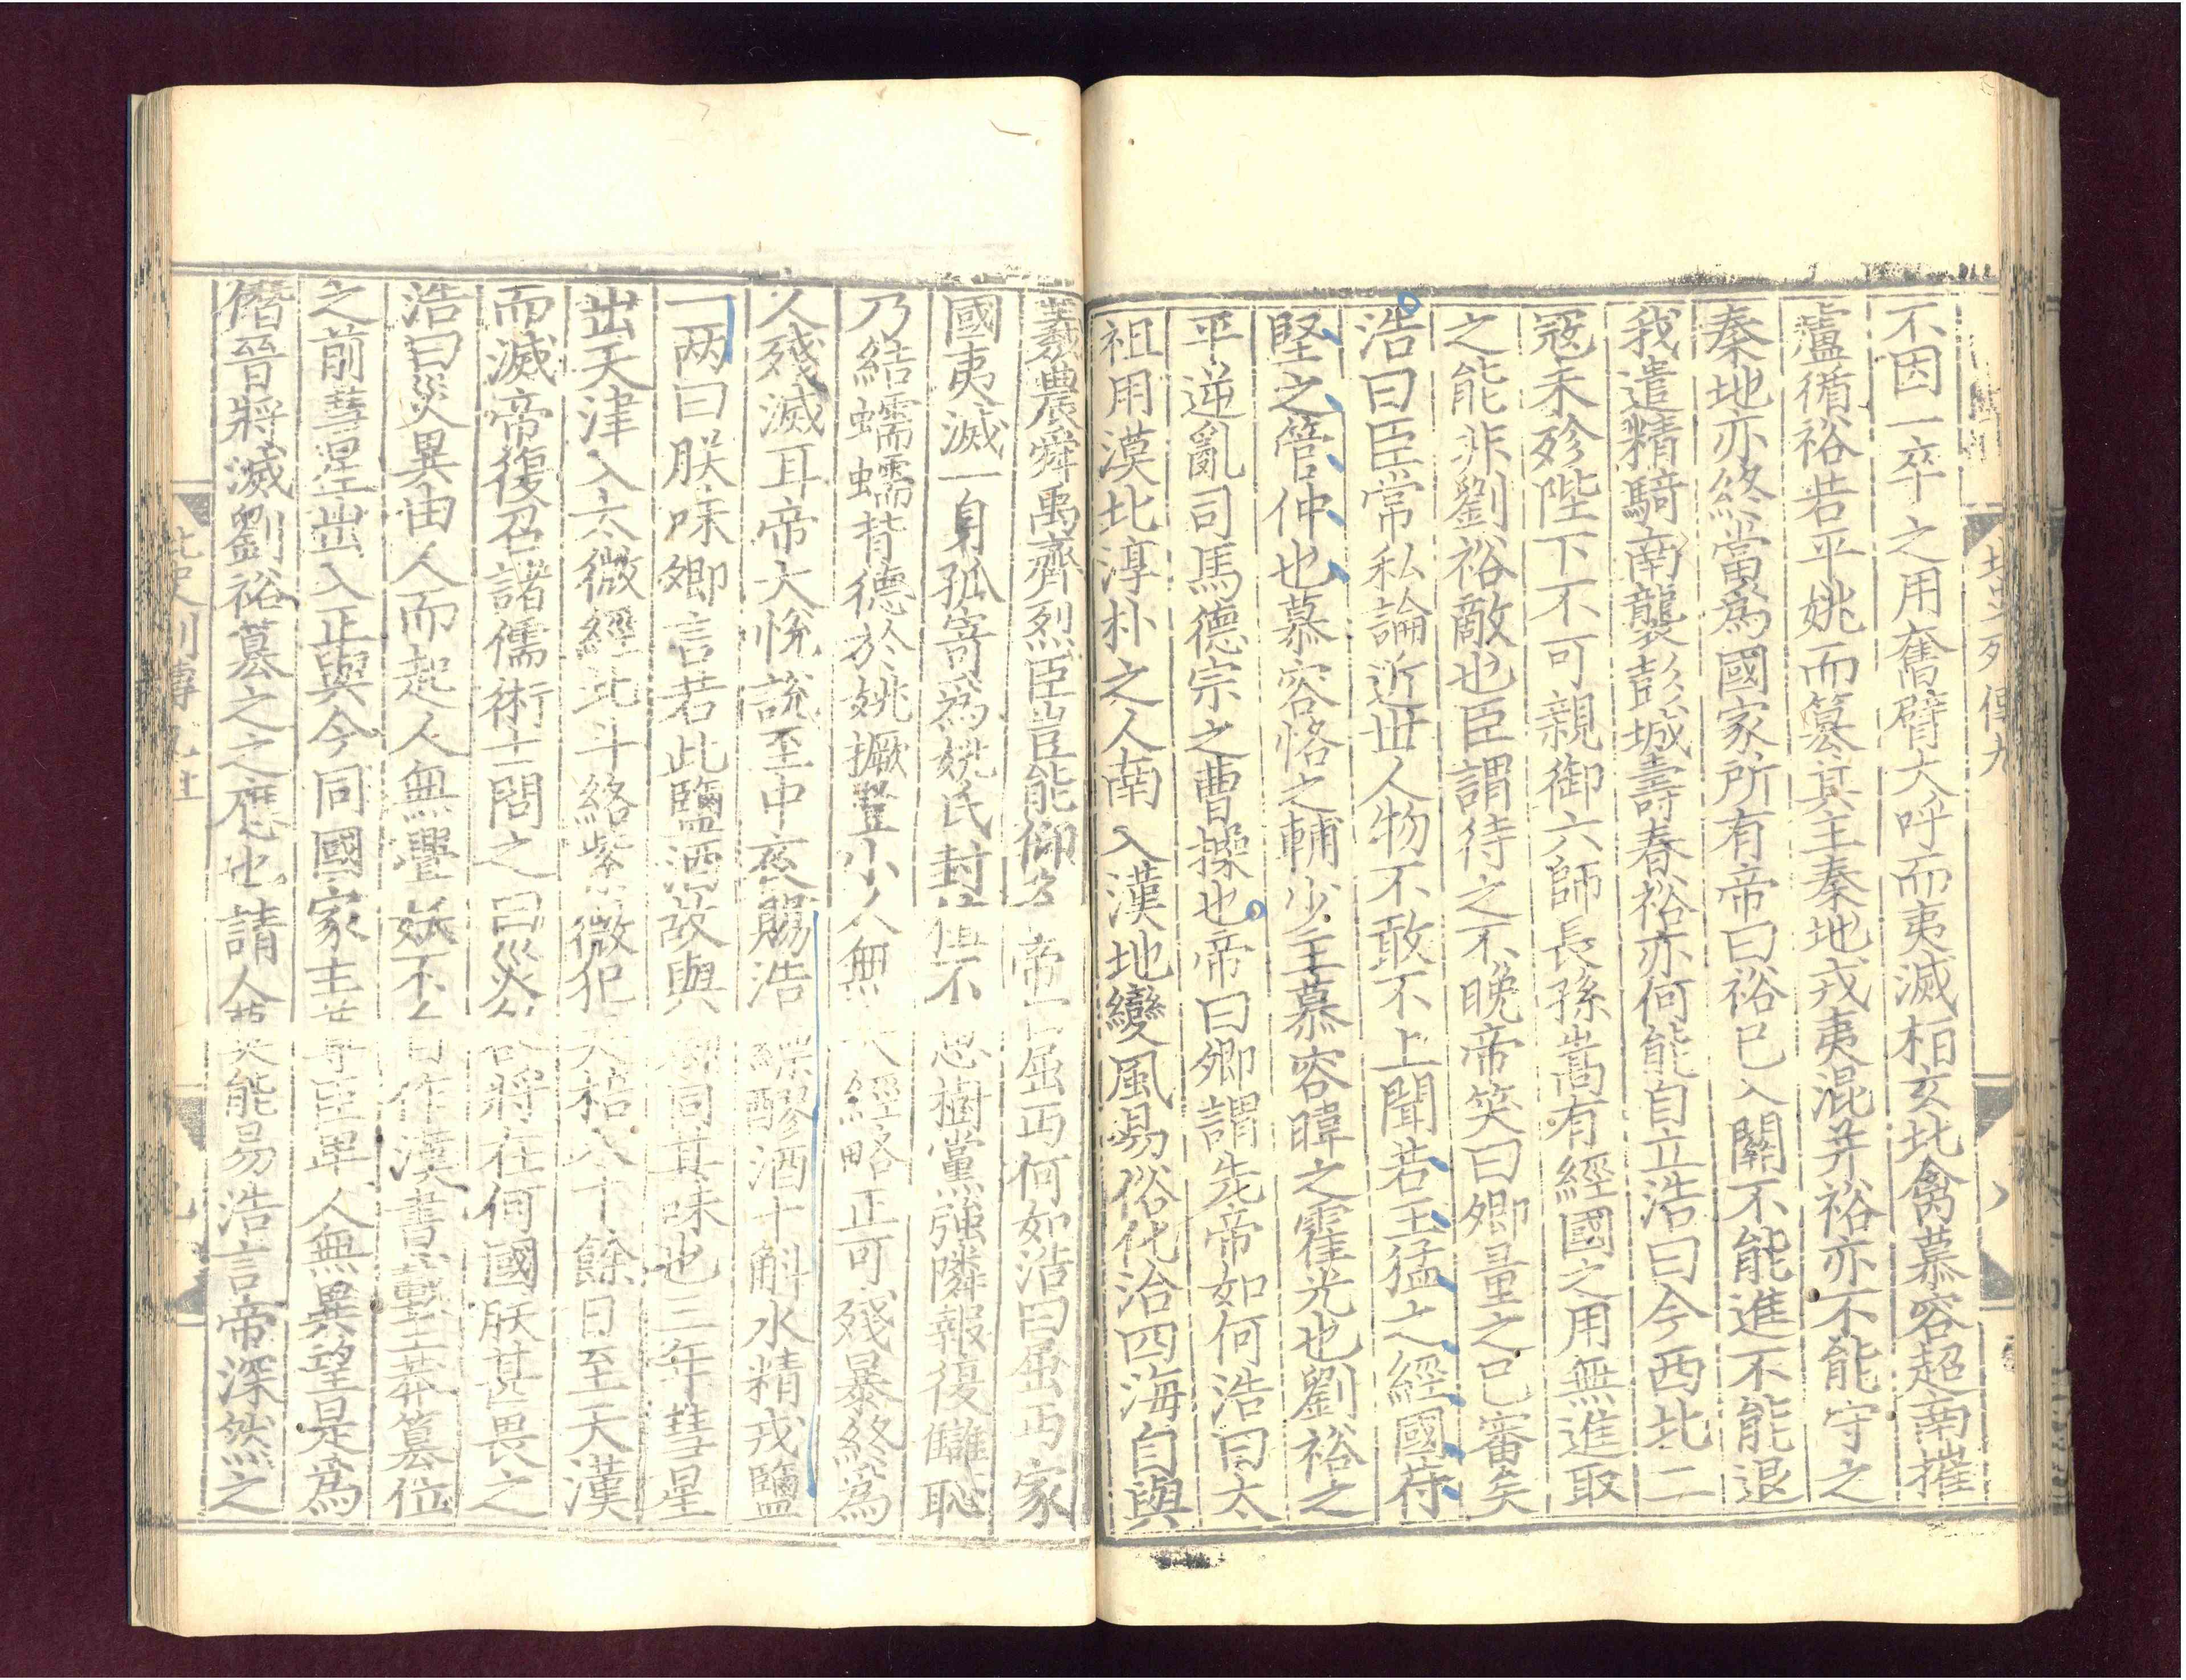 北史列傳九
不因一卒之用奮臂大呼而夷滅柏玄北禽慕容超南摧
盧循裕若平姚而簒其主秦地戎夷混并裕亦不能守之
秦地亦終當爲國家所有帝曰裕已入關不能進不能退
我遣精騎南襲彭城壽春裕亦何能自立浩曰今西北二
冦未殄陛下不可親御六師長孫嵩有經國之用無進取
之能非劉裕敵也臣謂待之不晚帝笑曰卿量之已審矣
浩曰臣常私論近世人物不敢不上聞若王猛之經國苻
堅之管仲也慕容恪之輔少主慕容暐之霍光也劉裕之
平逆亂司馬德宗之曹操也帝曰卿謂先帝如何浩曰太
祖用漠北淳朴之人南入漢地變風易俗化治四海自與
羲農舜禹齊烈臣豈能仰名帝曰屈丐何如浩曰屈丐家
國夷滅一身孤寄爲姚氏封殖不思樹黨強隣報復讎恥
乃結蠕蠕背德於姚撅豎小人無大經略正可殘暴終爲
人殘滅耳帝大悅說至中夜賜浩縹醪酒十斛水精戎鹽
一兩曰朕味卿言若此鹽酒故與卿同其味也三年彗星
出天津入太微經北斗絡紫微犯天棓八十餘日至天漢
而滅帝復召諸儒術士問之曰災咎將在何國朕甚畏之
浩曰災異由人而起人無釁妖不自作漢書載王莽簒位
之前彗星出入正與今同國家主尊臣卑人無異望是爲
僭晉將滅劉裕簒之之應也請人莫能易浩言帝深然之
北史列傳九